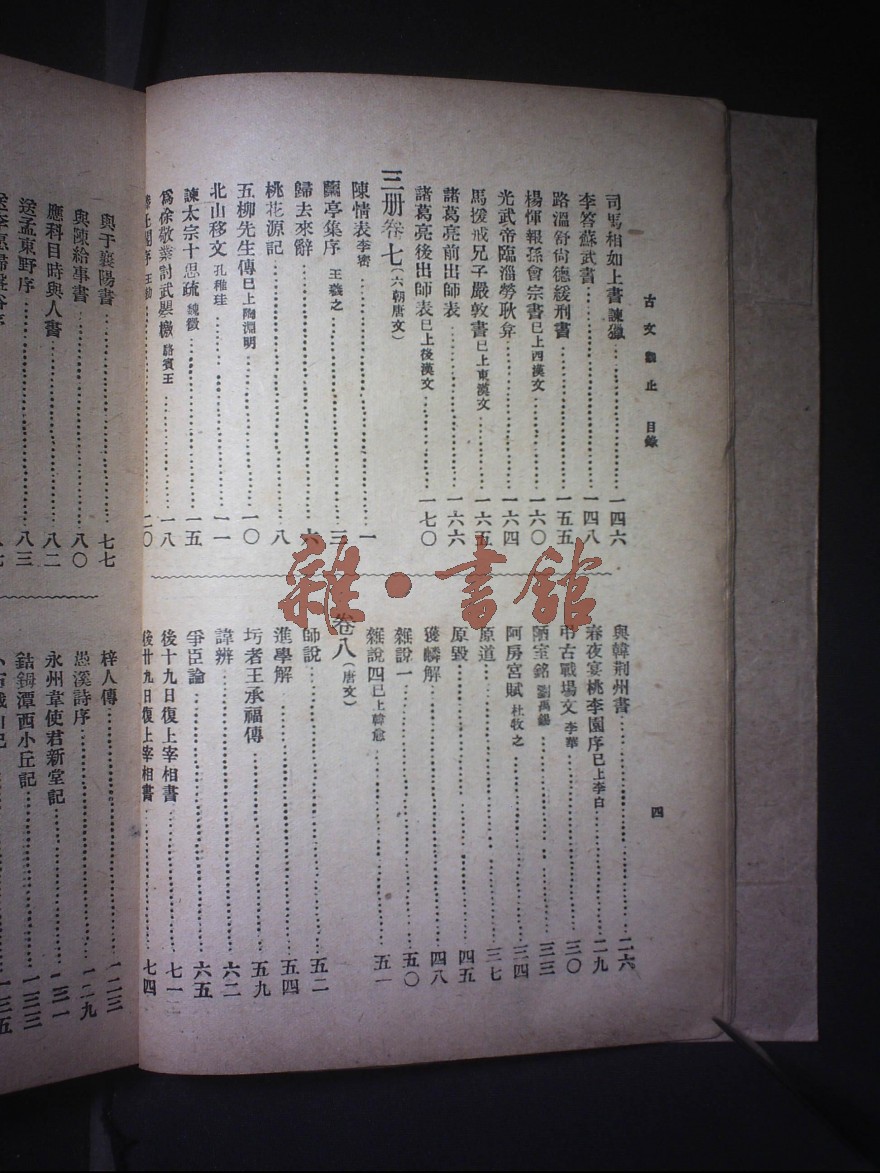 古文觀止 目錄
四
司馬相如上書諫獵 一四六
李答蘇武書 一四八
路溫舒尙德緩刑書 一五五
楊惲報孫會宗書已上西漢文 一六〇
光武帝臨淄勞耿弇 一六四
馬援戒兄子嚴敦書已上東漢文 一六五
諸葛亮前出師表 一六六
諸葛亮後出師表已上後漢文 一七〇
三册卷七(六朝唐文)
陳情表李密 一
蘭亭集序 王羲之 三
歸去來辭 六
桃花源記 八
五柳先生傳已上陶淵明 一〇
北山移文 孔稚珪 一一
諫太宗十思疏 魏徵 一五
爲徐敬業討武曌檄 駱賓王 一八
滕王閣序 王勃 二〇
與韓荆州書 二六
春夜宴桃李園序已上李白 二九
弔古戰場文 李華 三〇
陋室銘 劉禹錫 三三
阿房宮賦 杜牧之 三四
原道 三七
原毀 四五
獲麟解 四八
雜說一 五〇
雜說四已上韓愈 五一
卷八(唐文)
師說 五二
進學解 五四
圬者王承福傳 五九
諱辨 六二
爭臣論 六五
後十九日復上宰相書 七一
後廿九日復上宰相書 七四
與于襄陽書 七七
與陳給事書 八〇
應科目時與人書 八二
送孟東野序 八三
梓人傳 一二三
愚溪詩序 一二九
永州韋使君新堂記 一三一
鈷鉧潭西小丘記 一三三
一三五
雜·書館